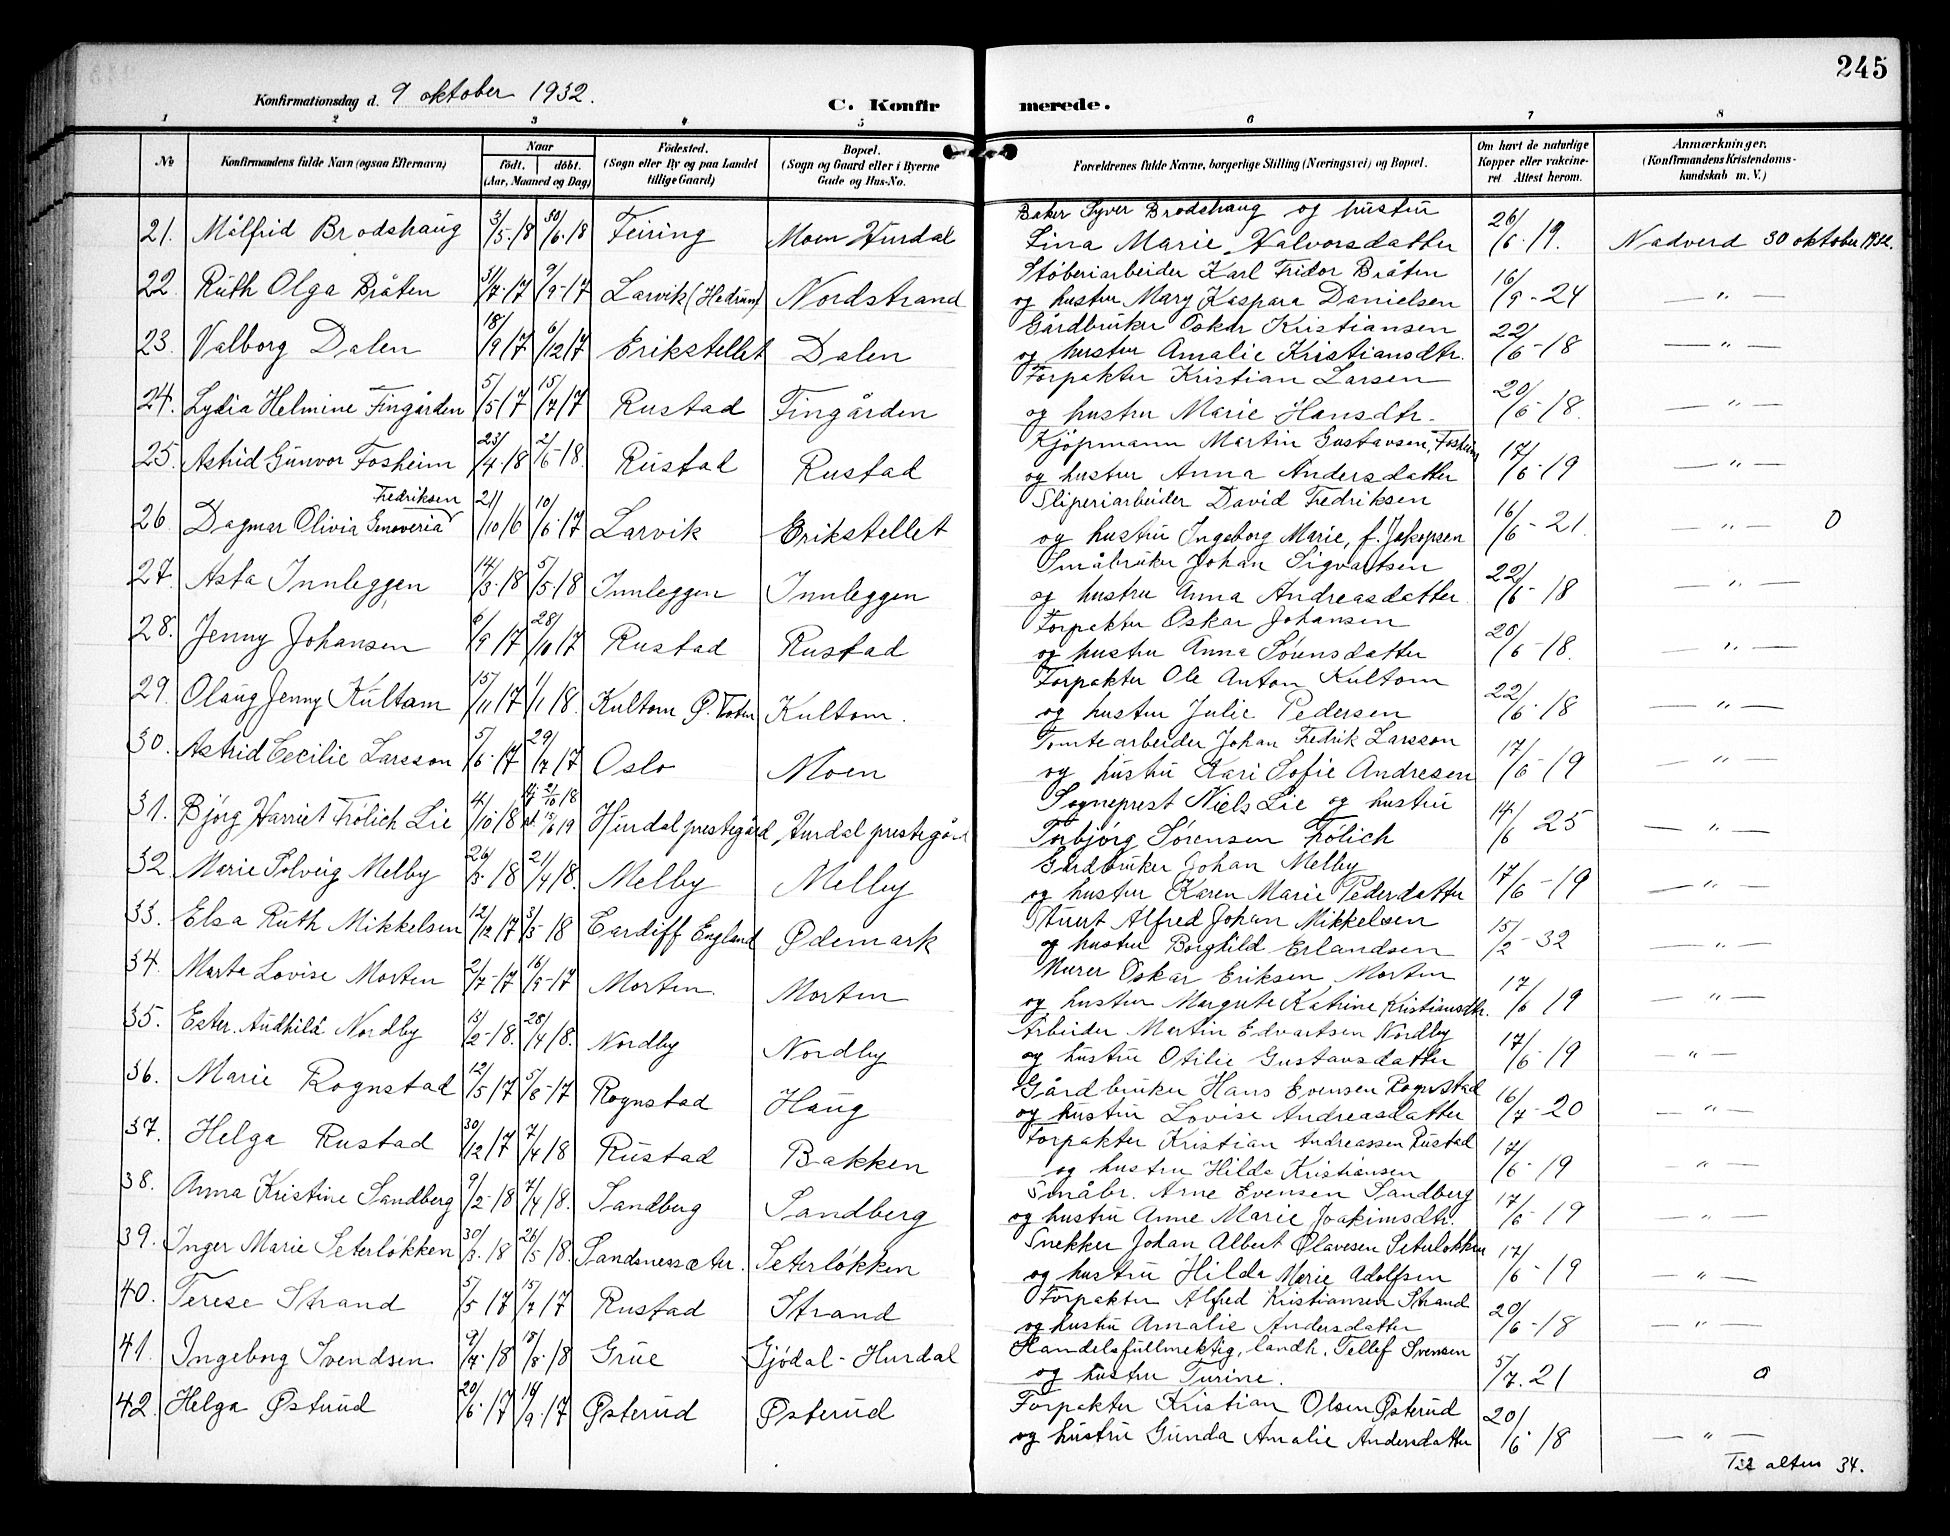 245
Konfirmationsdag d. 9 oktober 1932.
C. Konfirmerede.
1 2 3 4 5 6 7 8
No
Konfirmandens fulde Navn (ogsaa Efternavn)
Naar
født. døbt.
(Aar, Maaned og Dag)
Fødested.
(Sogn eller By og paa Landet
tillige Gaard)
Bopæl.
(Sogn og Gaard eller i Byerne
Gade og Hus-No.
Forældrenes fulde Navne, borgerlige Stilling (Næringsvei) og Bopæl.
Om havt de naturlige
Kopper eller vakcine-
ret Attest herom.
Anmærkninger.
(Konfirmandens Kristendoms-
kundskab m. V.)
21. Målfrid Brodshaug 3/5-18 30/6-18 Feiring Moen Hurdal Baker Syver Brodshaug og hustru
Lina Marie Halvorsdatter 26/6-19. Nadverd 30 oktober 1932.
22. Ruth Olga Bråten 31/7-17 9/9-17 Larvik (Hedrum) Nordstrand Støberiarbeider Karl Fridor Bråten
og hustru Mary Kaspara Danielsen 16/9-24 — „ —
23. Valborg Dalen 18/9 17 6/12 17 Erikstellet Dalen Gårdbruker Oskar Kristiansen
og hustru Amalie Kristiansdtr. 22/6-18 — „ —
24. Lydia Helmine Fingården 5/5 17 15/7 17 Rustad Fingården Forpakter Kristian Larsen
og hustru Marie Hansdtr. 20/6-18. — „ —
25. Astrid Gunvor Fosheim 23/4-18 2/6-18. Rustad Rustad Kjøpmann Martin Gustavsen Fosheim
og hustru Anna Andersdatter 17/6-19 — „ —
26. Dagmar Olivia Genoveria Fredriksen 21/10 16 10/6-17 Larvik Erikstellet Sliperiarbeider David Fredriksen
og hustru Ingeborg Marie, f. Jakopsen 16/6-21. — „ — 0
27. Asta Innleggen 14/3-18 5/5-18 Innleggen Innleggen Småbruker Johan Sigvartsen
og hustru Anna Andreasdatter. 22/6-18 — „ —
28. Jenny Johansen 6/9 17 28/10 17 Rustad Rustad Forpakter Oskar Johansen
og hustru Anna Sørensdatter 20/6-18. — „ —
29. Olaug Jenny Kultam 15/11 17 1/1 18. Kultom Ø. Toten Kultom. Forpakter Ole Anton Kultom
og hustru Julie Pedersen 22/6-18 — „ —
30. Astrid Cecilie Larsson 5/6-17 29/7 17 Oslo Moen Tomtearbeider Johan Fredrik Larsson
og hustru Kari Sofie Andresen 17/6-19 — „ —
31. Bjørg Harriet Frølich Lie 4/10 18 Hj 2/10 18 15/6 19 Hurdal prestegård Hurdal prestegård Sogneprest Niels Lie og hustru
Torbjørg Sørensen Frølich 14/6 25 — „ —
32. Marie Solveig Melby 26/3-18 21/4 18. Melby Melby Gårdbruker Johan Melby
og hustru Karen Marie Pedersdatter 17/6-19 — „ —
33. Elsa Ruth Mikkelsen 12/12 17 3/3 18 Cardiff England Ødemark Stuert Alfred Johan Mikkelsen
og hustru Borghild Erlandsen 15/2-32 — „ —
34. Marta Lovise Morten 2/7-17 16/9-17 Morten. Morten Murer Oskar Eriksen Morten
og hustru Margrete Katrine Kristiansdtr. 17/6 19 — „ —
35. Ester Audhild Nordby 13/2-18. 28/4 18. Nordby Nordby Arbeider Martin Edvartsen Nordby
og hustru Otilie Gustavsdatter 17/6-19 — „ —
36. Marie Rognstad 12/5 17 5/8-17 Rognstad Haug Gårdbruker Hans Evensen Rognstad
og hustru Lovise Andreasdatter 16/7-20 — „ —
37. Helga Rustad 30/12 17 7/4 18 Rustad Bakken Forpakter Kristian Andreassen Rustad
og hustru Hilda Kristiansen 17/6-19 — „ —
38. Anna Kristine Sandberg 9/2-18 7/4 18. Sandberg Sandberg Småbr. Arne Evensen Sandberg
og hustru Anne Marie Joakimsdtr. 17/6-19 — „ —
39. Inger Marie Seterløkken 30/3-18 26/5 18. Sandsnessæter. Seterløkken Snekker Johan Albert Olavesen Seterløkken
og hustru Hilda Marie Adolfsen 17/6-19 — „ —
40. Terese Strand 5/5 17 15/7 17 Rustad Strand Forpakter Alfred Kristiansen Strand
og hustru Amalie Andersdatter 20/6-18 — „ —
41. Ingeborg Svendsen 9/7-18 18/8-18 Grue Gjødal - Hurdal Handelsfullmektig, landh. Tellef Svensen
og hustru Turine. 5/7.21 0
42. Helga Østerud 20/6-17 14/9-17 Østerud Østerud Forpakter Kristian Olsen Østerud
og hustru Gunda Amalie Andersdatter 20/6-18 — „ —
Til alters 34.